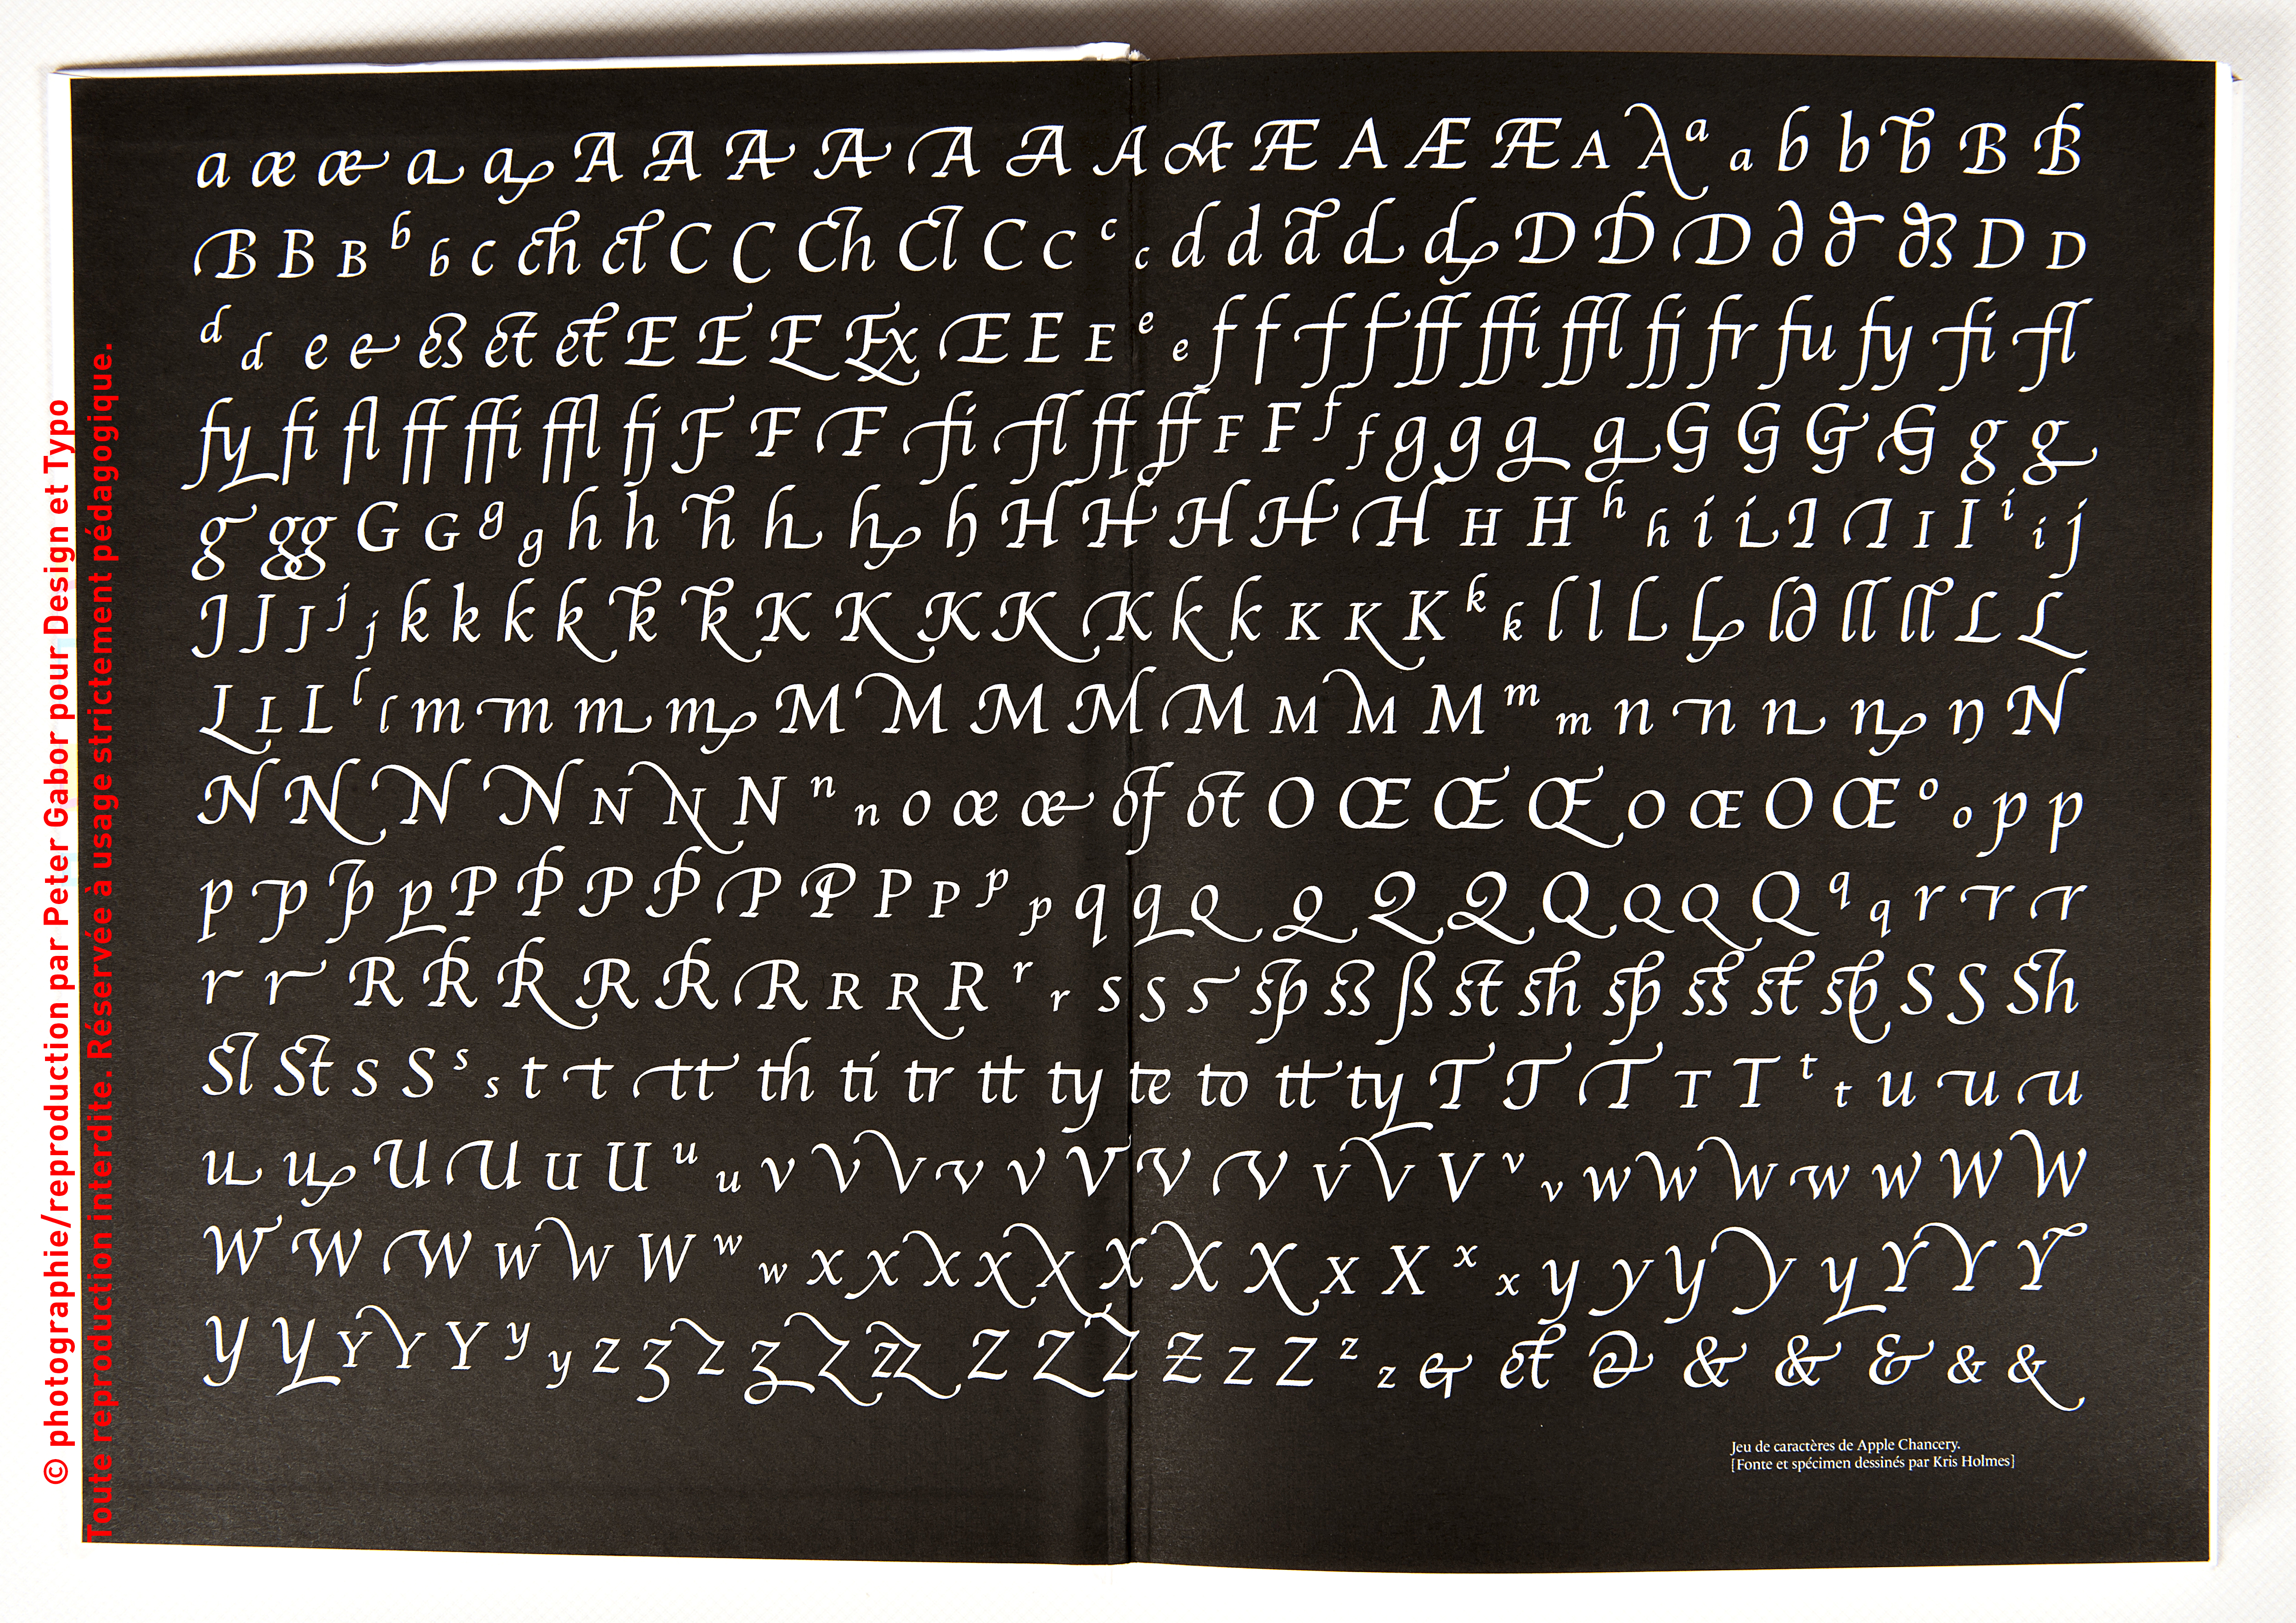 a æ æ a a A A A A A A A A Æ A Æ Æ A A a a b b b B B
B B B b b c ch ct C C Ch Cl C C c c d d d d d D D D ∂ ∂ ∂s D D
d d e e es et et E E E Ex Œ E E e e f f f f ff ffi ffl fj fr fu fy fi fl
fy fi fl ff ffi ffl fj F F F fi fl ff ff F F f f g g g g G G G G g g
g gg G G g g h h h h h h H H H H H H H h h i i I I I I i i j
J J J j j k k k k k k K K K K K k k K K K k k l l l l l∂ ll ll L L
L L L l l m m m m M M M M M M M M m m n n n n n N
N N N N N N N n n o œ œ of ot O Œ Œ Œ O Œ O Œ o o p p
p p p p P P P P P P P P p p q q Q Q Q Q Q Q Q Q q q r r r
r r R R R R R R R R R r r s s s sp ss ß st sh sp ss st sp S S Sh
Sl St S S s s t t tt th ti tr tt ty te to tt ty T T T T T t t u u u
u u U U U U u u v v v v v V V V V V V v v w w w w w W W
W W W W W W w w x x x x x X X X X X x x y y y y y Y Y Y
Y Y Y Y Y y y z z z z z zz Z Z Z Z Z Z z z & et & & & & & &
Jeu de caractères de Apple Chancery.
[Fonte et spécimen dessinés par Kris Holmes]
© photographie/reproduction par Peter Gabor pour Design et Typo
Toute reproduction interdite. Réservée à usage strictement pédagogique.